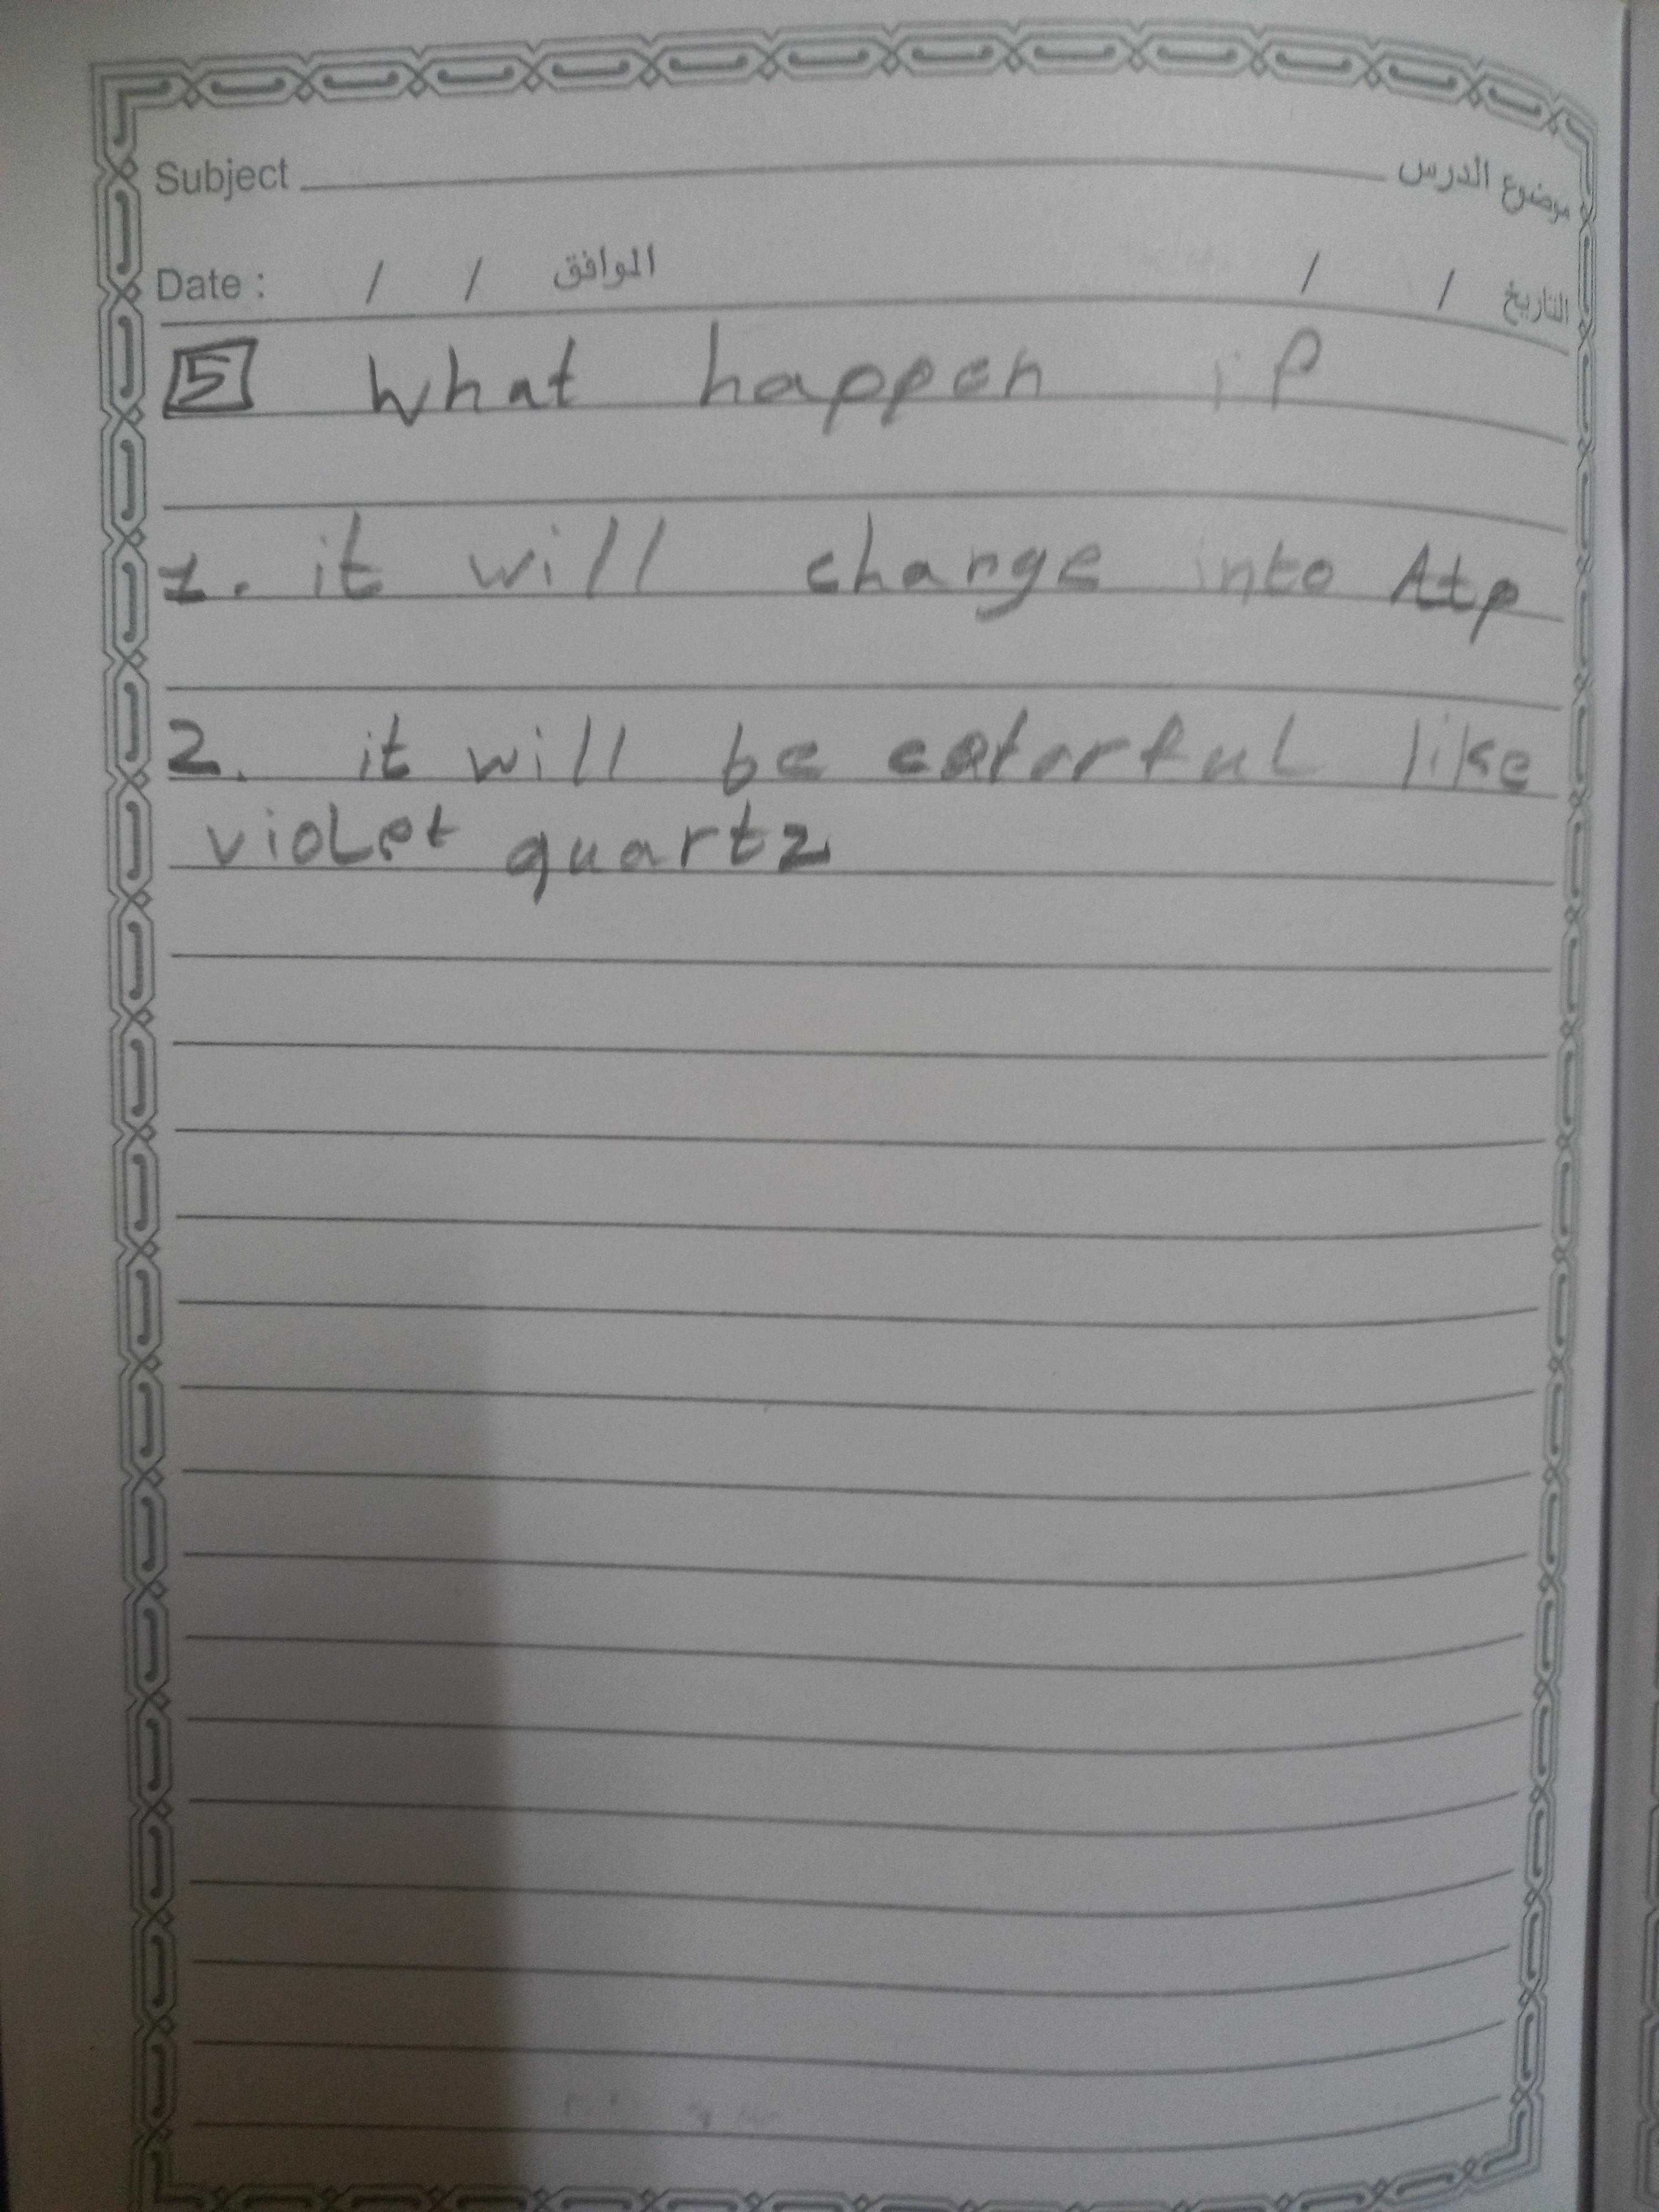 Subject موضوع الدرس
Date : / / الموافق / / التاريخ
5 What happen if
1. it will change into Atp
2. it will be colorful like
violet quartz